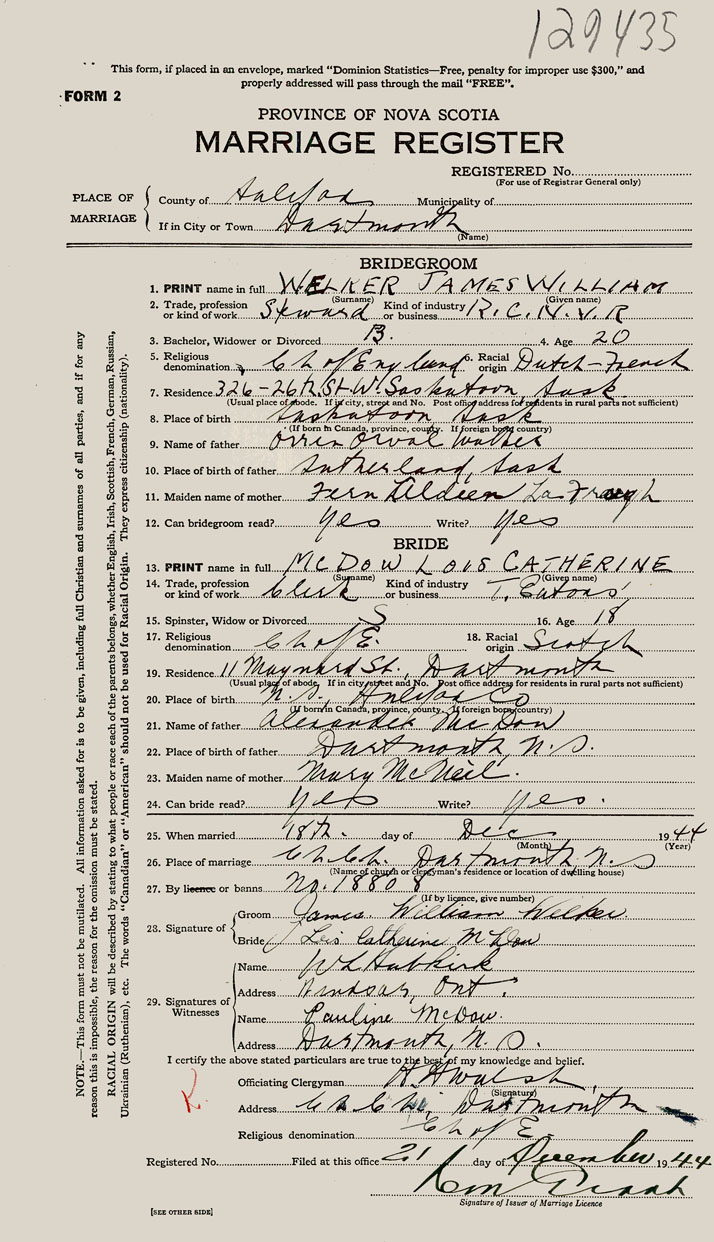 129435
This form, if placed in an envelope, marked "Dominion Statistics—Free, penalty for improper use $300," and
properly addressed will pass through the mail "FREE".
FORM 2
PROVINCE OF NOVA SCOTIA
MARRIAGE REGISTER
REGISTERED No.
(For use of Registrar General only)
PLACE OF MARRIAGE
County of Halifax Municipality of
If in City or Town Dartmouth
(Name)
BRIDEGROOM
1. PRINT name in full WELKER JAMES WILLIAM
(Surname) (Given name)
2. Trade, profession or kind of work Steward Kind of industry or business R.C.N.V.R
3. Bachelor, Widower or Divorced B. 4. Age 20
5. Religious denomination Ch of England 6. Racial origin Dutch-French
7. Residence 326-26th St. W. Saskatoon, Sask
(Usual place of abode. If in city, street and No. Post office address for residents in rural parts not sufficient)
8. Place of birth Saskatoon, Sask
(If born in Canada, province, county. If foreign born, country)
9. Name of father Orrin Orval Welker
10. Place of birth of father Sutherland, Sask
11. Maiden name of mother Fern
12. Can bridegroom read? Yes Write? Yes
BRIDE
13. PRINT name in full MCDOW LOIS CATHERINE
(Surname) (Given name)
14. Trade, profession or kind of work Clerk Kind of industry or business T. Eatons'
15. Spinster, Widow or Divorced S 16. Age 18
17. Religious denomination Ch of E. 18. Racial origin Scotch
19. Residence 11 Maynard St., Dartmouth
(Usual place of abode. If in city, street and No. Post office address for residents in rural parts not sufficient)
20. Place of birth N.S., Halifax Co
(If born in Canada, province, county. If foreign born, country)
21. Name of father Alexander McDow
22. Place of birth of father Dartmouth, N.S.
23. Maiden name of mother Mary McNeil.
24. Can bride read? Yes Write? Yes.
25. When married 18th. day of Dec 1944
(Month) (Year)
26. Place of marriage Ch. Ch. Dartmouth N.S
(Name of church or clergyman's residence or location of dwelling house)
27. By licence or banns No. 18808
(If by licence, give number)
28. Signature of
Groom James William Welker
Bride Lois Catherine McDow
29. Signatures of Witnesses
Name
Address Windsor, Ont.
Name Pauline McDow.
Address Dartmouth, N.S.
I certify the above stated particulars are true to the best of my knowledge and belief.
Officiating Clergyman Walsh
(Signature)
Address Dartmouth
Religious denomination Ch of E
Registered No. Filed at this office 21 day of December 1944
Signature of Issuer of Marriage Licence
[SEE OTHER SIDE]
NOTE.—This form must not be mutilated. All information asked for is to be given, including full Christian and surnames of all parties, and if for any
reason this is impossible, the reason for the omission must be stated.
RACIAL ORIGIN will be described by stating to what people or race each of the parents belongs, whether English, Irish, Scottish, French, German, Russian,
Ukrainian (Ruthenian), etc. The words "Canadian" or "American" should not be used for Racial Origin. They express citizenship (nationality).